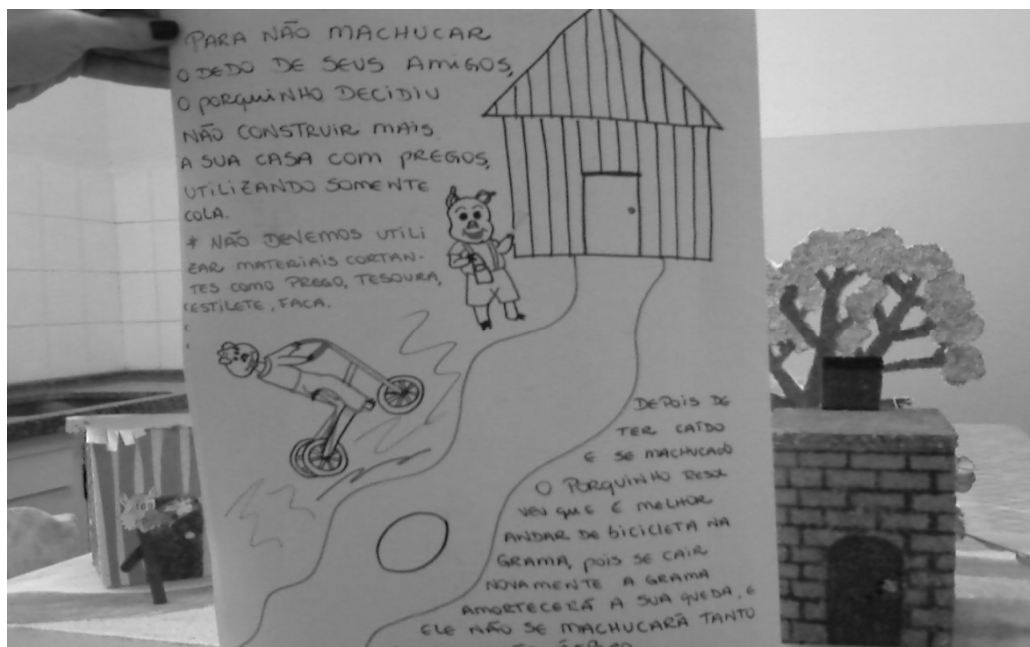 PARA NÃO MACHUCAR
O DEDO DE SEUS AMIGOS,
O PORQUINHO DECIDIU
NÃO CONSTRUIR MAIS
A SUA CASA COM PREGOS,
UTILIZANDO SOMENTE
COLA.
* NÃO DEVEMOS UTILI
ZAR MATERIAIS CORTAN-
TES COMO PREGO, TESOURA,
ESTILETE, FACA.
DEPOIS DE
TER CAÍDO
E SE MACHUCADO
O PORQUINHO RESOL
VEU QUE É MELHOR
ANDAR DE BICICLETA NA
GRAMA, POIS SE CAIR
NOVAMENTE A GRAMA
AMORTECERÁ A SUA QUEDA, E
ELE NÃO SE MACHUCARÁ TANTO